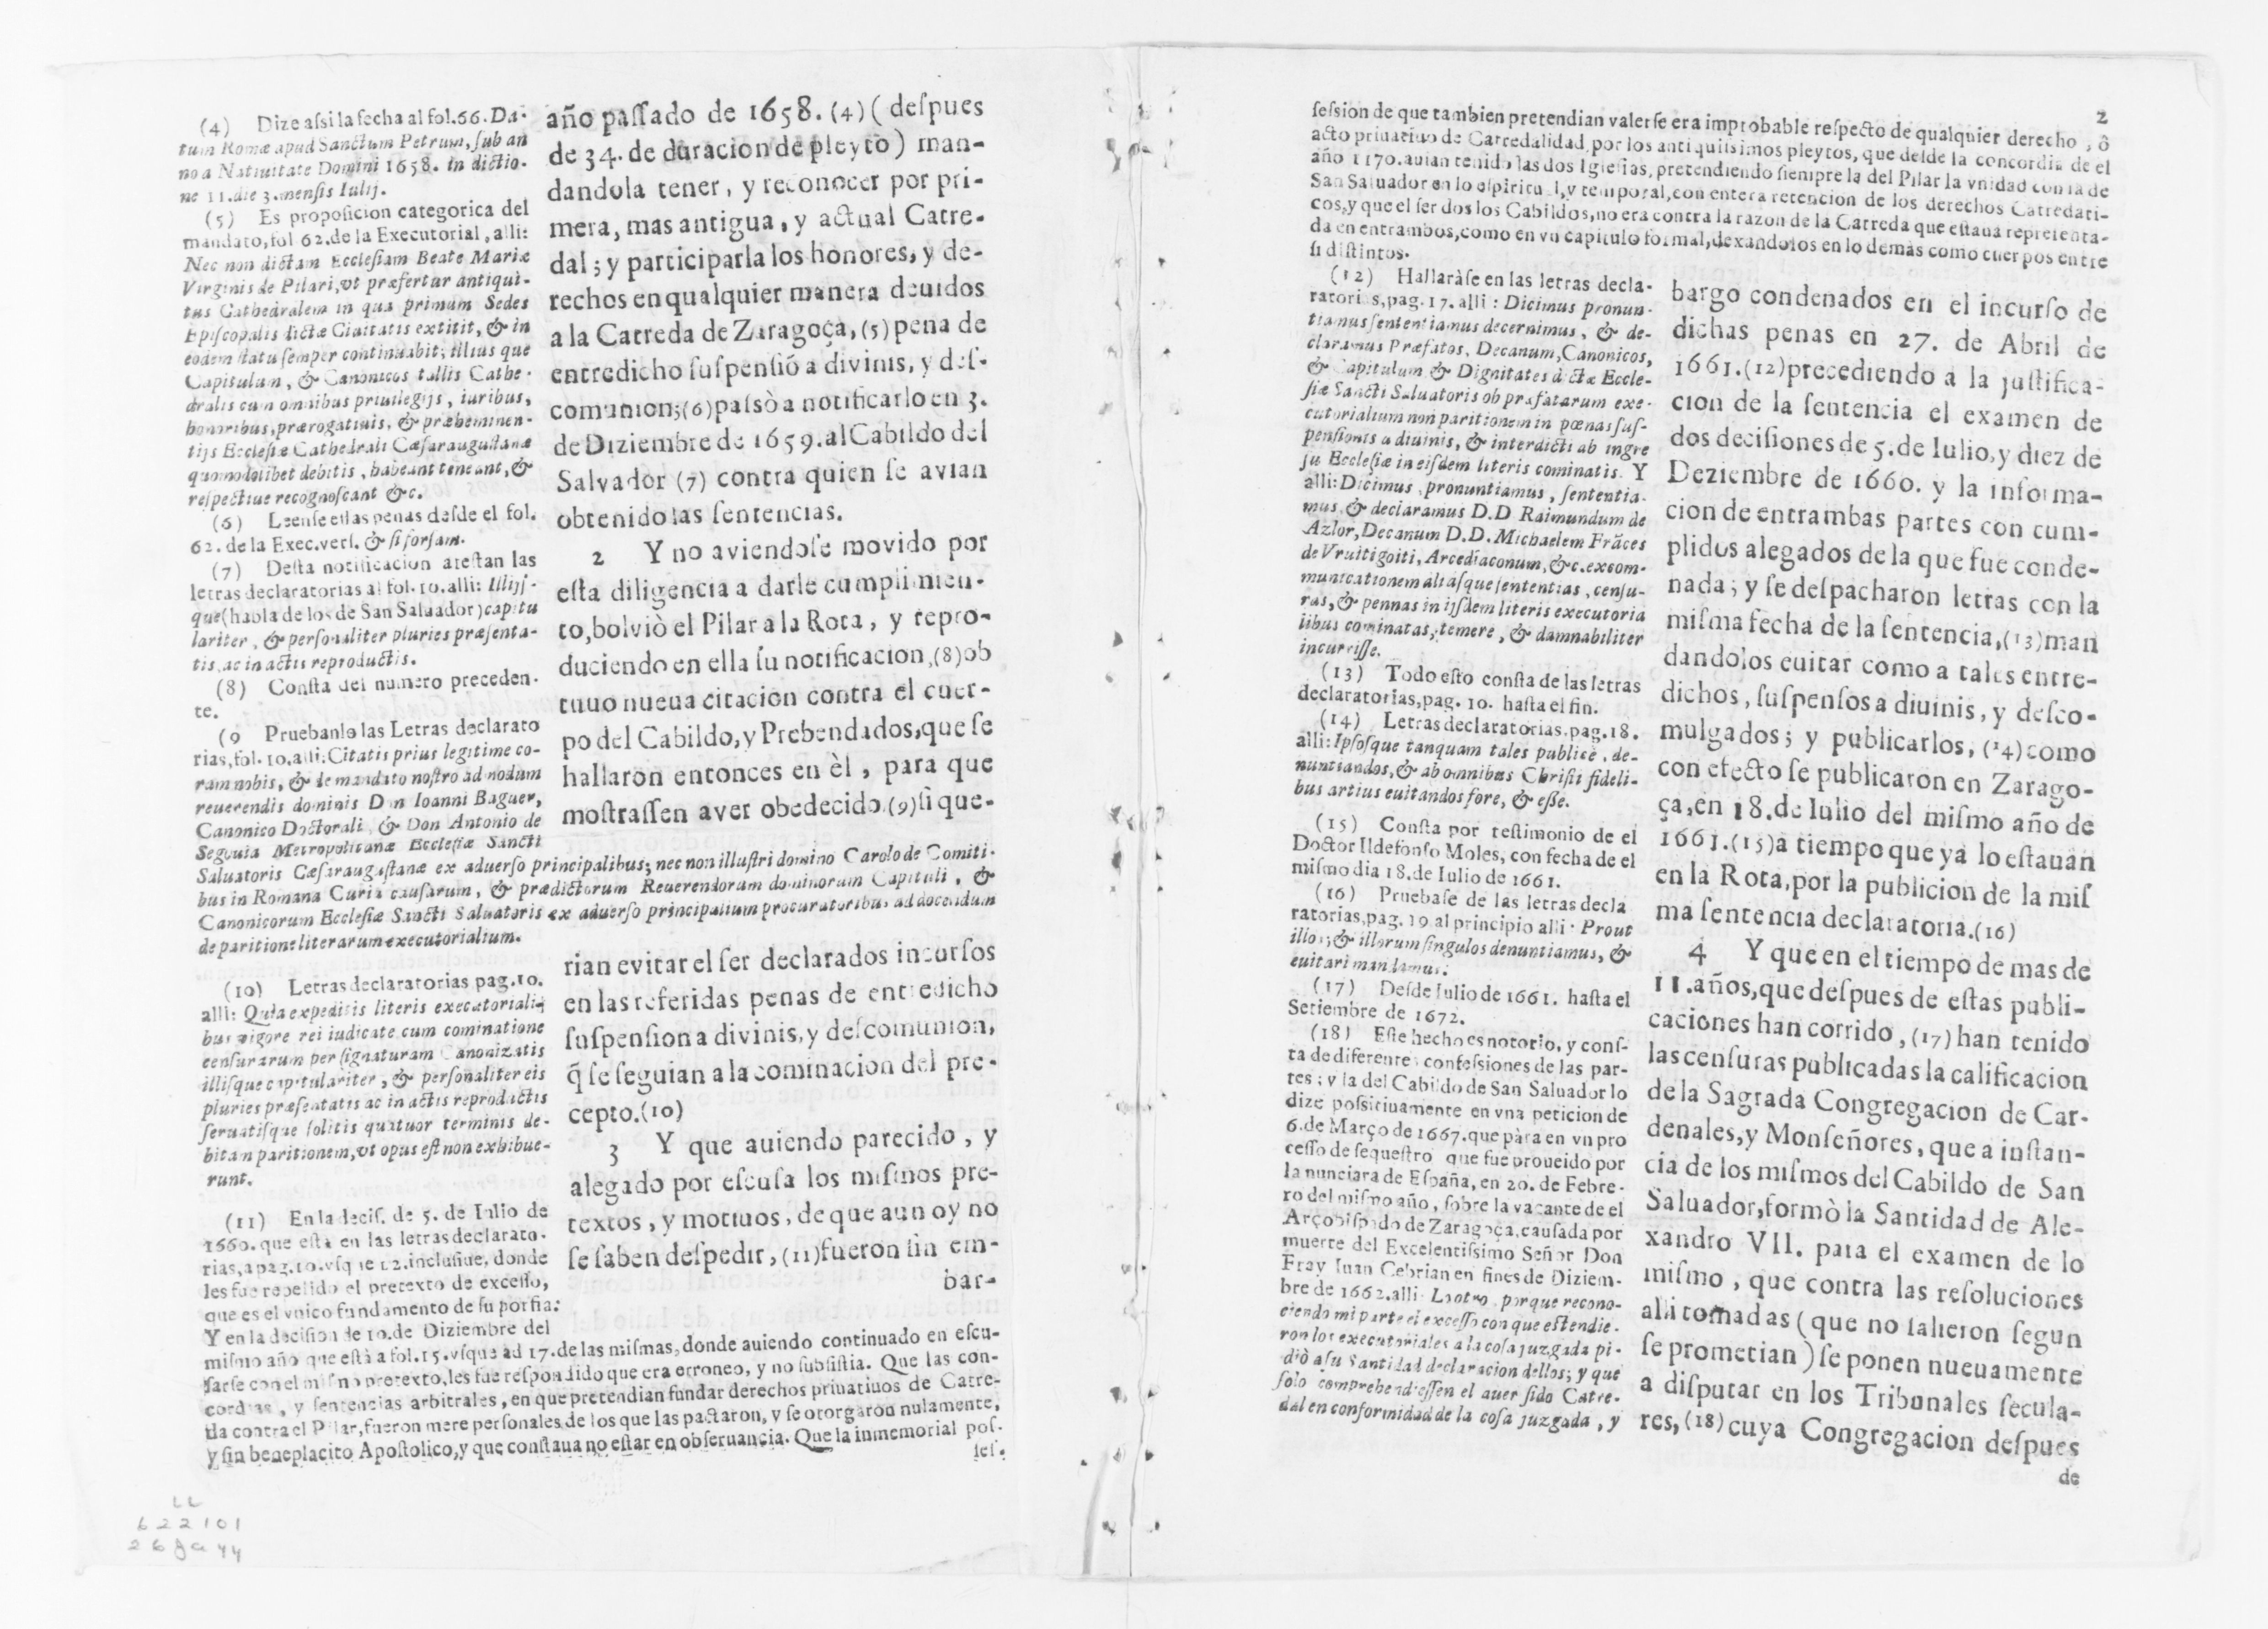 (4) Dize aſsi la fecha al fol.66. Da-
tum Romæ apud Sanctum Petrum, ſub an
no a Natiuitate Domini 1658. in dictio-
ne 11.die 3.menſis Iulij.
(5) Es propoſicion categorica del
mandato, fol 62.de la Executorial, alli:
Nec non dictam Eccleſiam Beate Mariæ
Virginis de Pilari, vt præfertur antiqui-
tus Cathedralem in qua primùm Sedes
Epiſcopalis dictæ Ciuitatis extitit, & in
eodem ſtatu ſemper continuabit; illius que
Capitulum, & Canonicos tallis Cathe-
dralis cum omnibus priuilegijs, iuribus,
honoribus, prærogatiuis, & præheminen-
tijs Eccleſiæ Cathedrali Cæſarauguſtanæ
quomodolibet debitis, habeant teneant, &
reſpectiue recognoſcant &c.
(6) Leenſe eſtas penas deſde el fol.
62. de la Exec.verſ. & ſi forſam.
(7) Deſta notificacion ateſtan las
letras declaratorias al fol.10.alli: Illijſ-
que (habla de los de San Saluador) capitu
lariter, & perſonaliter pluries præſenta-
tis, ac in actis reproductis.
(8) Conſta del numero preceden-
te.
(9 Pruebanlo las Letras declarato
rias, fol. 10.alli: Citatis prius legitime co-
ram nobis, & de mandato noſtro ad nodum
reuerendis dominis Don Ioanni Baguer,
Canonico Doctorali, & Don Antonio de
Segouia Metropolitanæ Eccleſiæ Sancti
Saluatoris Cæſarauguſtanæ ex aduerſo principalibus; nec non illuſtri domino Carolo de Comiti-
bus in Romana Curia cauſarum, & prædictorum Reuerendorum dominorum Capituli, &
Canonicorum Eccleſiæ Sancti Saluatoris ex aduerſo principalium procuratoribus ad docendum
de paritione literarum executorialium.
(10) Letras declaratorias pag.10.
alli: Quia expeditis literis executoriali-
bus vigore rei iudicate cum cominatione
cenſurarum per ſignaturam Canonizatis
illiſque capitulariter, & perſonaliter eis
pluries præſentatis ac in actis reproductis
ſeruatiſque ſolitis quatuor terminis de-
bitam paritionem, vt opus eſt non exhibue-
runt.
(11) En la deciſ. de 5. de Iulio de
1660. que eſtà en las letras declarato-
rias, a pag.10.vſque 12.incluſiue, donde
les fue repelido el pretexto de exceſſo,
que es el vnico fundamento de ſu porfia:
Y en la deciſion de 10.de Diziembre del
miſmo año que eſtà a fol.15.vſque ad 17.de las miſmas, donde auiendo continuado en eſcu-
ſarſe con el miſmo pretexto, les fue reſpondido que era erroneo, y no ſubſiſtia. Que las con-
cordias, y ſentencias arbitrales, en que pretendian fundar derechos priuatiuos de Catre-
da contra el Pilar, fueron mere perſonales de los que las pactaron, y ſe otorgaron nulamente,
y ſin beneplacito Apoſtolico, y que conſtaua no eſtar en obſeruancia. Que la inmemorial poſ-
ſeſ-
año paſſado de 1658. (4) (deſpues
de 34. de duracion de pleyto) man-
dandola tener, y reconocer por pri-
mera, mas antigua, y actual Catre-
dal; y participarla los honores, y de-
rechos en qualquier manera deuidos
a la Catreda de Zaragoça, (5) pena de
entredicho ſuſpenſiõ a divinis, y deſ-
comunion; (6) paſsò a notificarlo en 3.
de Diziembre de 1659. al Cabildo del
Salvador (7) contra quien ſe avian
obtenido las ſentencias.
2 Y no aviendoſe movido por
eſta diligencia a darle cumplimien-
to, bolviò el Pilar a la Rota, y repro-
duciendo en ella ſu notificacion, (8) ob
tuuo nueua citacion contra el cuer-
po del Cabildo, y Prebendados, que ſe
hallaron entonces en èl, para que
moſtraſſen aver obedecido.(9) ſi que-
rian evitar el ſer declarados incurſos
en las referidas penas de entredicho
ſuſpenſion a divinis, y deſcomunion,
q̃ ſe ſeguian a la cominacion del pre-
cepto.(10)
3 Y que auiendo parecido, y
alegado por eſcuſa los miſmos pre-
textos, y motiuos, de que aun oy no
ſe ſaben deſpedir, (11) fueron ſin em-
bar-
2
ſeſsion de que tambien pretendian valerſe era improbable reſpecto de qualquier derecho, ô
acto priuatiuo de Catredalidad, por los antiquiſsimos pleytos, que deſde la concordia de el
año 1170. auian tenido las dos Igleſias, pretendiendo ſiempre la del Pilar la vnidad con la de
San Saluador en lo eſpiritual, y temporal, con entera retencion de los derechos Catredati-
cos, y que el ſer dos los Cabildos, no era contra la razon de la Catreda que eſtaua repreſenta-
da en entrambos, como en vn capitulo formal, dexandolos en lo demàs como cuerpos entre
ſi diſtintos.
(12) Hallaràſe en las letras decla-
ratorias, pag.17. alli: Dicimus pronun-
tiamus ſententiamus decernimus, & de-
claramus Præfatos, Decanum, Canonicos,
& Capitulum & Dignitates dictæ Eccle-
ſiæ Sancti Saluatoris ob præfatarum exe-
cutorialium non paritionem in pœnas ſuſ-
penſionis a diuinis, & interdicti ab ingre
ſu Eccleſiæ in eiſdem literis cominatis. Y
alli: Dicimus, pronuntiamus, ſententia-
mus, & declaramus D.D Raimundum de
Azlor, Decanum D.D. Michaelem Frãces
de Vruitigoiti, Arcediaconum, &c.excom-
municationem aliaſque ſententias, cenſu-
ras, & pennas in ijſdem literis executoria
libus cominatas, temere, & damnabiliter
incurriſſe.
(13) Todo eſto conſta de las letras
declaratorias, pag. 10. haſta el fin.
(14) Letras declaratorias, pag.18.
alli: Ipſoſque tanquam tales publicè, de-
nuntiandos, & ab omnibus Chriſti fideli-
bus artius euitandos fore, & eſſe.
(15) Conſta por teſtimonio de el
Doctor Ildefonſo Moles, con fecha de el
miſmo dia 18.de Iulio de 1661.
(16) Pruebaſe de las letras decla
ratorias, pag. 19 al principio alli: Prout
illos, & illorum ſingulos denuntiamus, &
euitari mandamus.
(17) Deſde Iulio de 1661. haſta el
Setiembre de 1672.
(18) Eſte hecho es notorio, y conſ-
ta de diferentes confeſsiones de las par-
tes; y la del Cabildo de San Saluador lo
dize poſsitiuamente en vna peticion de
6.de Março de 1667.que pàra en vn pro
ceſſo de ſequeſtro que fue proueido por
la nunciara de Eſpaña, en 20. de Febre-
ro del miſmo año, ſobre la vacante de el
Arçobiſpado de Zaragoça, cauſada por
muerte del Excelentiſsimo Señor Don
Fray Iuan Cebrian en fines de Diziem-
bre de 1662.alli: Lo otro, porque recono-
ciendo mi parte el exceſſo con que eſtendie-
ron los executoriales a la coſa juzgada pi-
diò a ſu Santidad declaracion dellos; y que
ſolo comprehendieſſen el auer ſido Catre-
dal en conformidad de la coſa juzgada, y
bargo condenados en el incurſo de
dichas penas en 27. de Abril de
1661.(12) precediendo a la juſtifica-
cion de la ſentencia el examen de
dos deciſiones de 5. de Iulio, y diez de
Deziembre de 1660. y la informa-
cion de entrambas partes con cum-
plidos alegados de la que fue conde-
nada; y ſe deſpacharon letras con la
miſma fecha de la ſentencia, (13) man
dandolos euitar como a tales entre-
dichos, ſuſpenſos a diuinis, y deſco-
mulgados; y publicarlos, (14) como
con efecto ſe publicaron en Zarago-
ça, en 18.de Iulio del miſmo año de
1661.(15) a tiempo que ya lo eſtauan
en la Rota, por la publicion de la miſ
ma ſentencia declaratoria.(16)
4 Y que en el tiempo de mas de
11.años, que deſpues de eſtas publi-
caciones han corrido, (17) han tenido
las cenſuras publicadas la calificacion
de la Sagrada Congregacion de Car-
denales, y Monſeñores, que a inſtan-
cia de los miſmos del Cabildo de San
Saluador, formò la Santidad de Ale-
xandro VII. para el examen de lo
miſmo, que contra las reſoluciones
alli tomadas (que no ſalieron ſegun
ſe prometian) ſe ponen nueuamente
a diſputar en los Tribunales ſecula-
res, (18) cuya Congregacion deſpues
de
LL
622101
26 ga 44